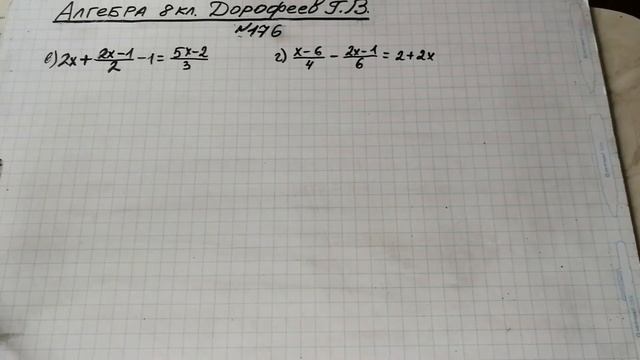 Алгебра 8 кл. Дорофеев Г.В.
№176
в) 2x + (2x-1)/2 - 1 = (5x-2)/3 г) (x-6)/4 - (2x-1)/6 = 2 + 2x